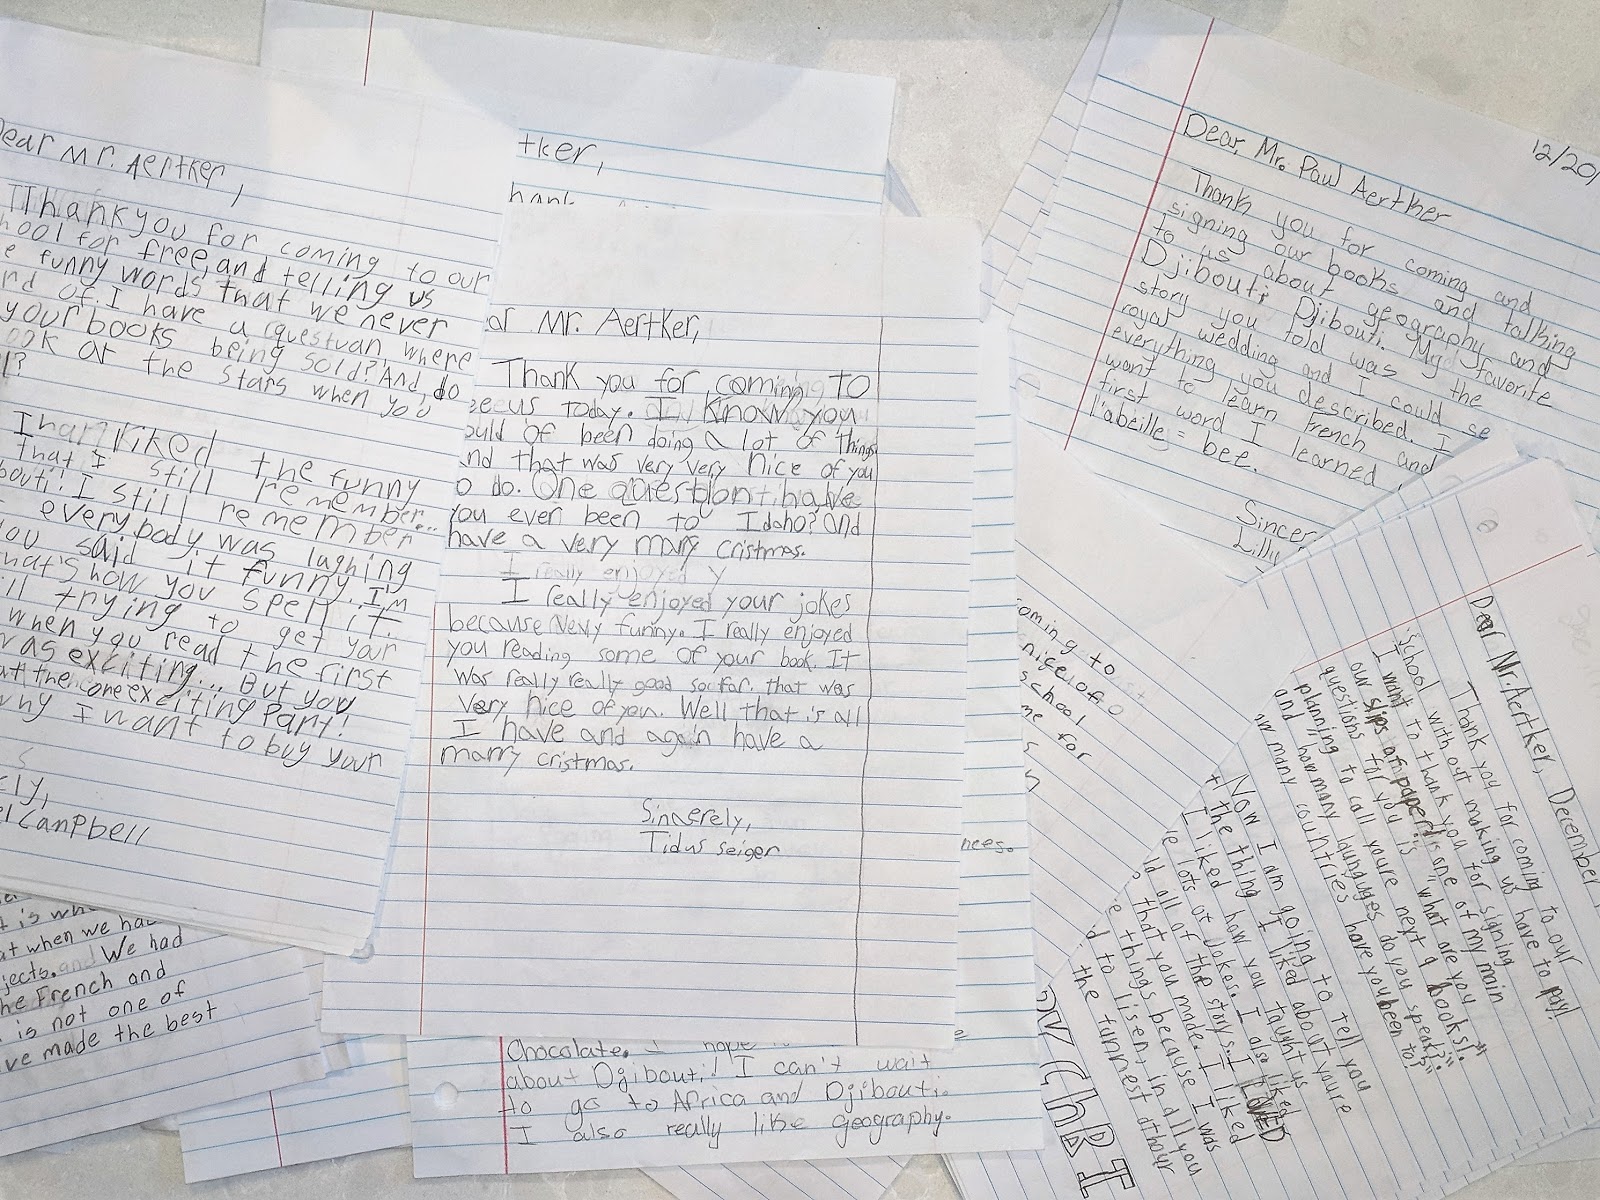 Dear Mr. Aertker,
Thank you for coming to our
hool for free, and telling us
e funny words that we never
rd of. I have a questuan, where
your books being sold? And, do
ook at the stars when you
I liked the funny
that I still remember...
bouti! I still remember
everybody was laghing
ou said it funny. I'm
hat's how you spell it.
ll trying to get your
when you read the first
was exciting... But you
at the one exciting Part!
hy I want to buy your
ely,
el CanPbell
tker,
hank
ar Mr. Aertker,
Thank you for coming to
see us today. I know you
ould of been doing a lot of things
and that was very very nice of you
o do. One question have
you ever been to Idaho? and
have a very marry cristmas.
I really enjoyed y
I really enjoyed your jokes
because funny. I really enjoyed
you reading some of your book. It
was really really good so far. that was
very nice of you. Well that is all
I have and again have a
marry cristmas.
Sincerely,
Tidus Seiger
12/20
Dear, Mr. Paul Aertker
Thank you for coming and
signing our books and talking
to us about geography and
Djibouti Djibouti. My favorite
story you told was the
royal wedding and I could se
everything you described. I
want to learn French and
first word I learned
l'abeille = bee.
Sincer
Lilly
oming to
nice of
school
me for
nees.
Dear Mr. Aertker, December
Thank you for coming to our
School with out making us have to pay!
I want to thank you for signing
our slips of paper! one of my main
questions for you is "what are you
planning to call youre next books?"
and, how many launguges do you speak?"
how many countries have you been to?
Now I am going to tell you
the thing I liked about youre
I liked how you taught us
lots of Jokes. I also liked
ld all of the storys. I LOVED
that you made. I liked
things because I was
d to lisen, in all you
the funnest athour
is wh
at when we had
jects. and We had
he French and
is not one of
ve made the best
Chocolate. I hope
about Djibouti! I can't wait
to go to Africa and Djibouti.
I also really like geography.